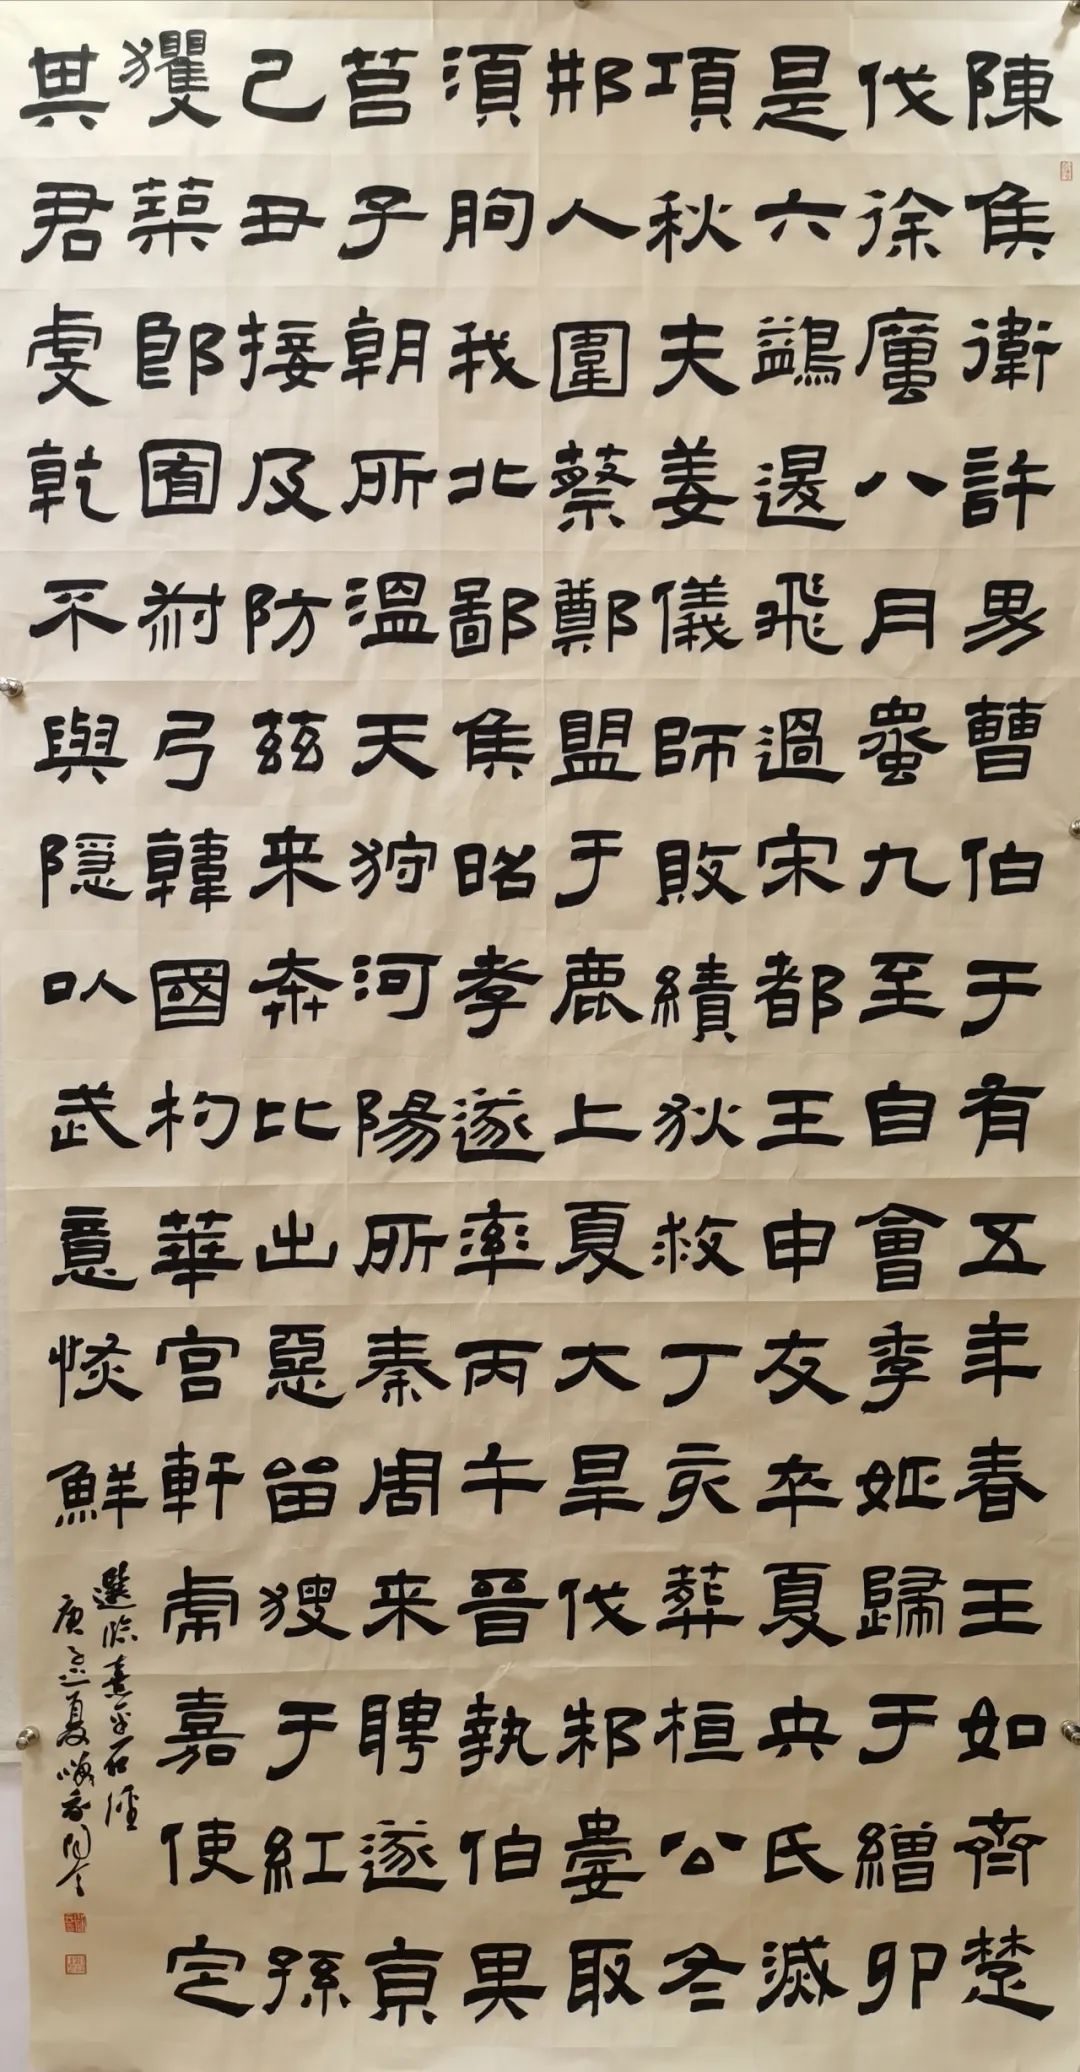 陳侯衛許男曹伯于有五年春王如齊楚
伐徐厲八月螽九至自會季姬歸于繒卯
是六鷁退飛過宋都王申友卒夏央氏滅
項秋夫姜儀師敗績狄救丁亥葬桓公冬
邢人圍蔡鄭盟于鹿上夏大旱伐邾婁取
須朐我北鄙侯昭孝遂率丙午晉執伯畀
莒子朝所溫天狩河陽所秦周来聘遂京
己丑接及防茲来奔比出惡留獀于紅孫
玃藥郎囿祔弓韓國杓華宮軒虎嘉使定
其君虔乾不與隱以武意惔鮮
選臨熹平石經
庚子夏